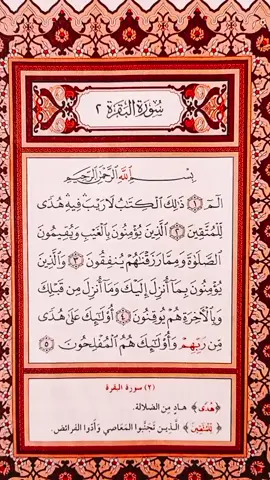 سُورَةُ الْبَقَرَةِ ٢
بِسْمِ اللَّهِ الرَّحْمَٰنِ الرَّحِيمِ
الٓمٓ ١ ذَٰلِكَ الْكِتَابُ لَا رَيْبَ ۛ فِيهِ ۛ هُدًى
لِّلْمُتَّقِينَ ٢ الَّذِينَ يُؤْمِنُونَ بِالْغَيْبِ وَيُقِيمُونَ
الصَّلَوٰةَ وَمِمَّا رَزَقْنَٰهُمْ يُنفِقُونَ ٣ وَالَّذِينَ
يُؤْمِنُونَ بِمَآ أُنزِلَ إِلَيْكَ وَمَآ أُنزِلَ مِن قَبْلِكَ
وَبِالْءَاخِرَةِ هُمْ يُوقِنُونَ ٤ أُو۟لَٰٓئِكَ عَلَىٰ هُدًى
مِّن رَّبِّهِمْ وَأُو۟لَٰٓئِكَ هُمُ الْمُفْلِحُونَ ٥
(٢) سورة البقرة
﴿هُدًى﴾ هـادٍ مِن الضلالة.
﴿لِّلْمُتَّقِينَ﴾ الَّـذِين تَجَنَّبُوا المَعَاصِي وَأَدَّوا الفَرائضَ.